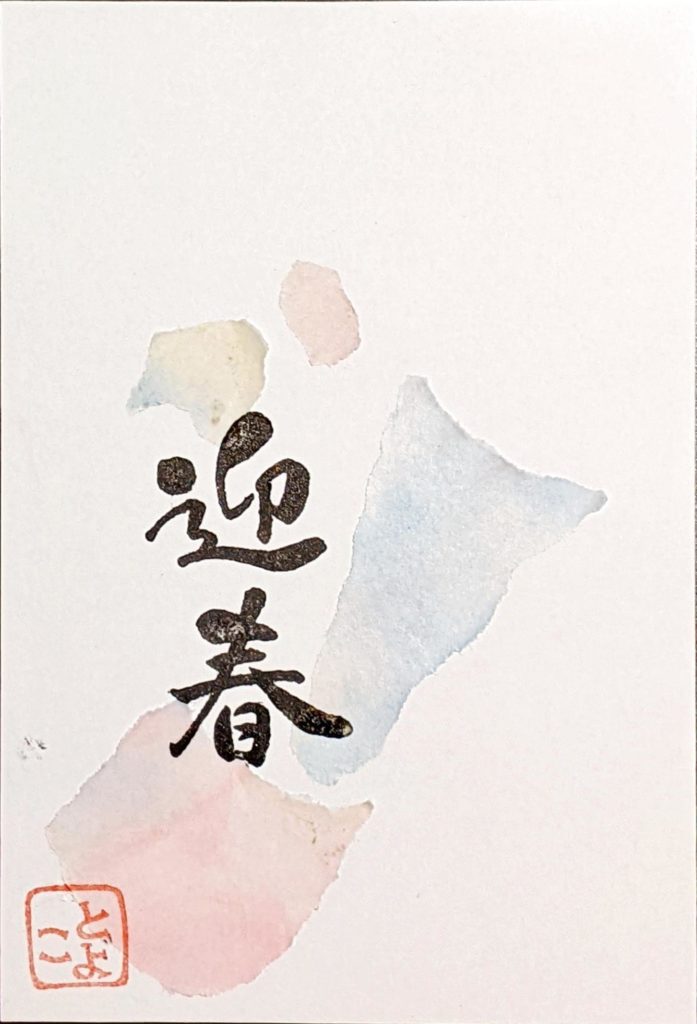 迎春
とよこ